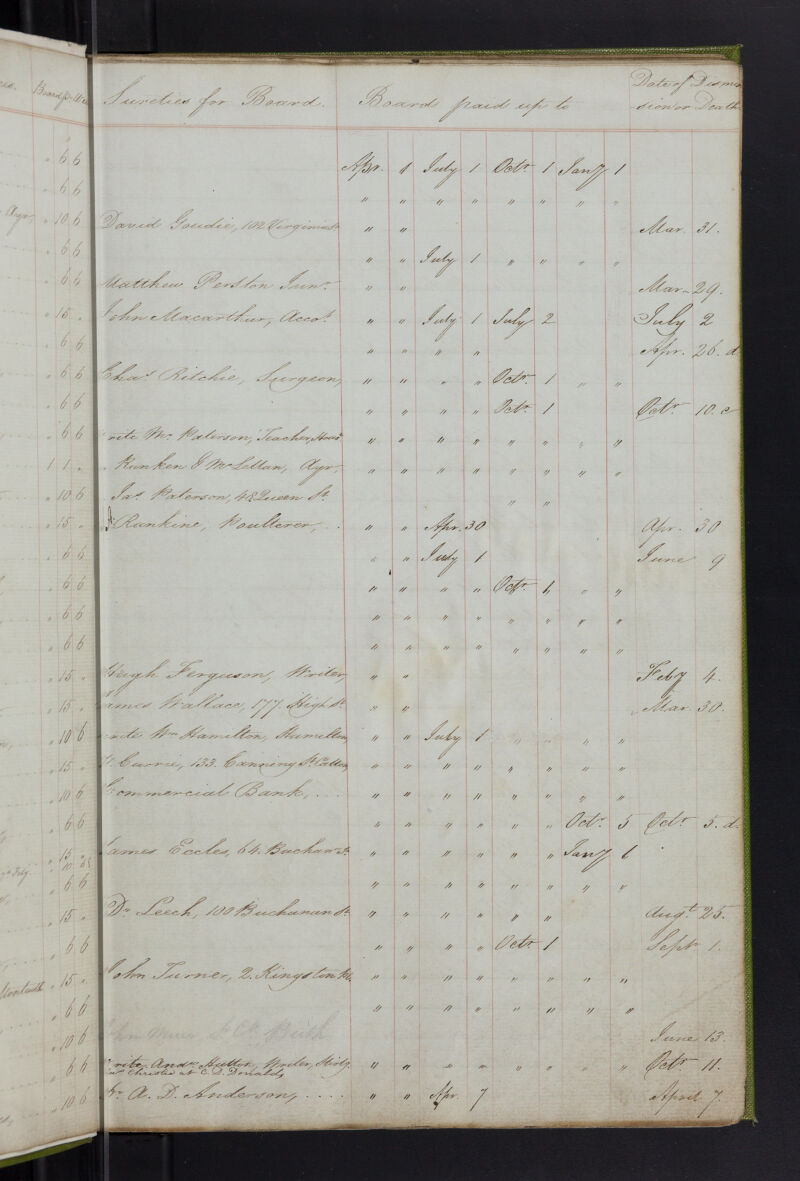 Board p. Wee Sureties for Board. Board paid up to Date of Dismis
-sion or Death
" 6 6 Apr. 1 July 1 Octr. 1 Jany 1
" 6 6 " " " " " " " "
Ayr, " 10 6 David Goudie, 102 Virginia St " " Mar. 31.
" 6 6 " " July 1 " " " "
" 6 6 Matthew Perston Junr. " " Mar. 29.
" 15 " John Macarthur, Accot. " " July 1 July 2 July 2
" 6 6 " " " " Apr. 26. d
" 6 6 Chas. Ritchie, Surgeon, " " " " Octr. 1 " "
" 6 6 " " " " Octr. 1 Octr. 10. c
" 6 6 write Mr. Paterson, Teacher, " " " " " " " "
1 1 " Ranken & McLellan, Ayr, " " " " " " " "
" 10 6 Jas. Paterson, 48 Queen St. " "
" 15 " Rankine, Poulterer, .. " " Apr. 30 Apr. 30
" 6 6 " " July 1 June 9
" 6 6 " " " " Octr. 1 " "
" 6 6 " " " " " " " "
" 6 6 " " " " " " " "
" 15 " Hugh Ferguson, Writer, " " Feby 4.
" 15 " James Wallace, 177 High St. " " Mar. 30.
" 10 6 write Wm. Hamilton, Hamilton, " " July 1 " " " "
" 15 " Currie, 133. Canning St. Calton, " " " " " " " "
" 10 6 Commercial Bank, ... " " " " " " " "
" 6 6 " " " " " " Octr. 5 Octr. 5. d.
" 15 " James Eccles, 64 Buchan St. " " " " " " Jany 1
" 6 6 " " " " " " " "
" 15 " Dr. Leech, 100 Buchanan St. " " " " " " Augt. 25.
" 6 6 " " " " Octr. 1 Sept. 1.
" 15 " John Turner, 2. Kingston Pl. " " " " " " " "
" 6 6 " " " " " " " "
" 10 6 John Muir Beith June 13.
" 6 6 write Andw. Hutton, Writer, Stirlg. " " " " " " " " Octr. 11.
Christie at C. D. Donalds,
" 10 6 Dr. A. D. Anderson, .... " " Apr. 7 April 7.